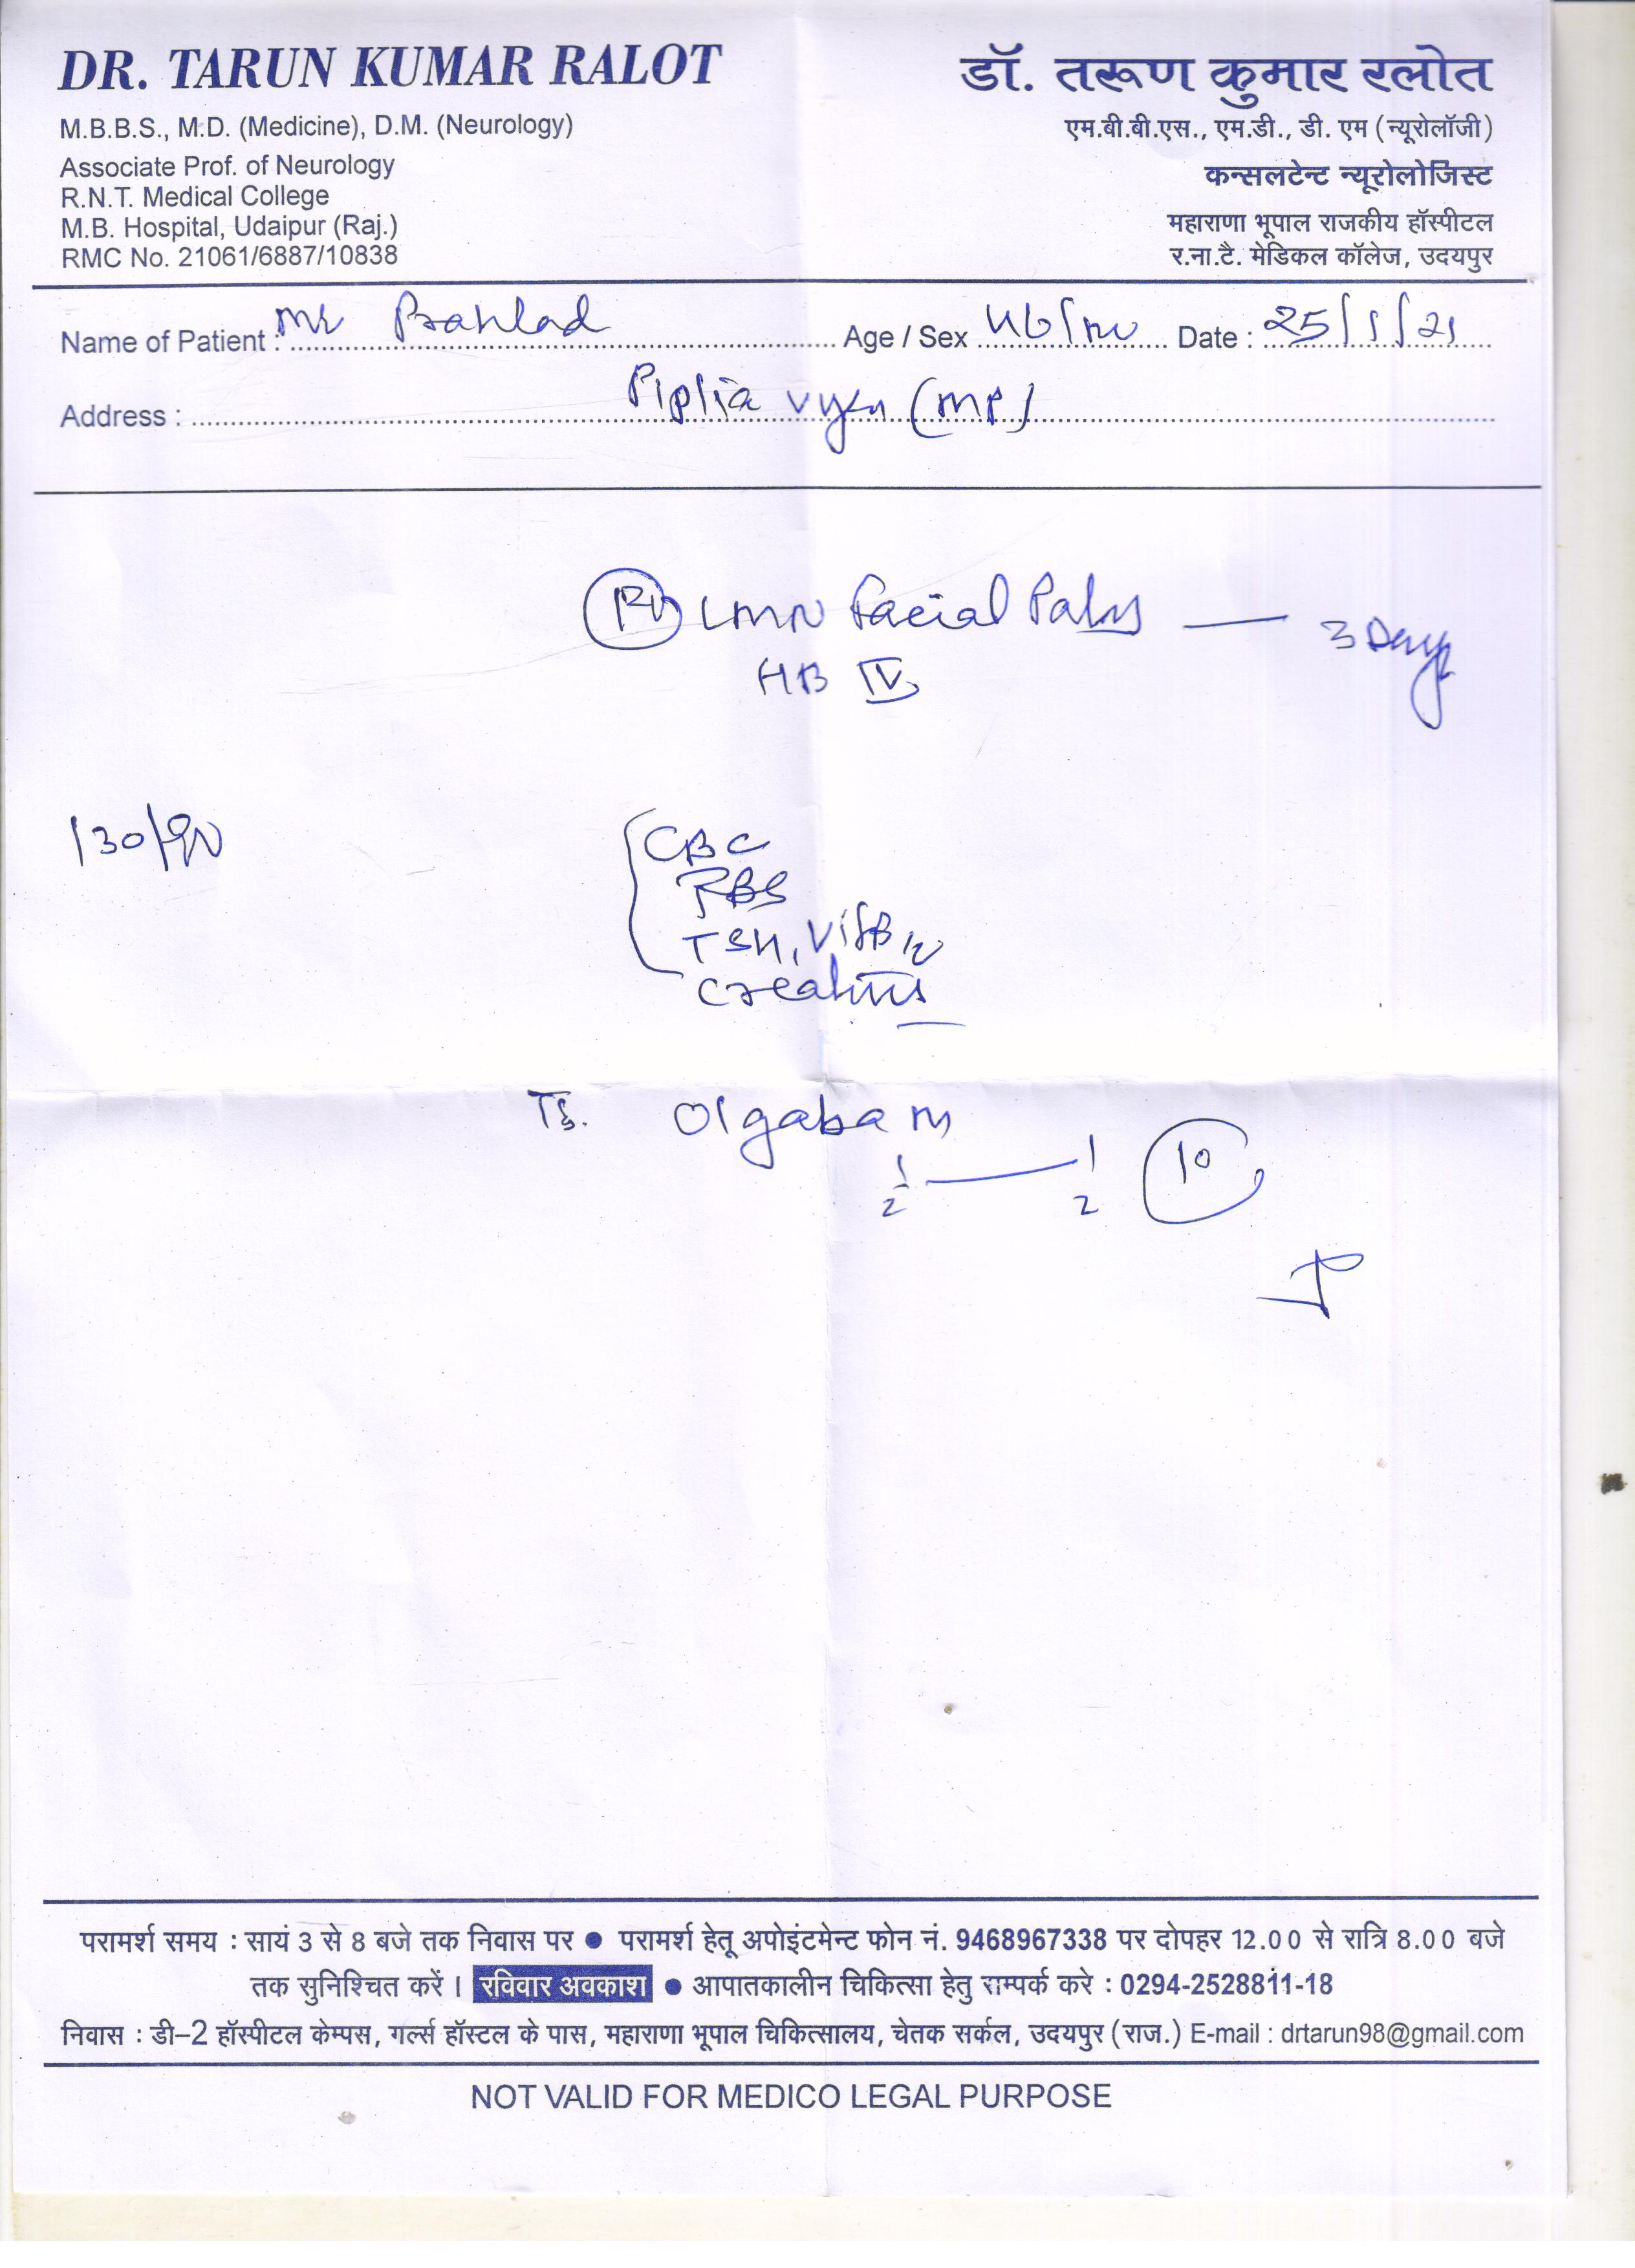 DR. TARUN KUMAR RALOT
M.B.B.S., M.D. (Medicine), D.M. (Neurology)
Associate Prof. of Neurology
R.N.T. Medical College
M.B. Hospital, Udaipur (Raj.)
RMC No. 21061/6887/10838
डॉ. तरूण कुमार रलोत
एम.बी.बी.एस., एम.डी., डी. एम (न्यूरोलॉजी)
कन्सलटेन्ट न्यूरोलोजिस्ट
महाराणा भूपाल राजकीय हॉस्पीटल
र.ना.टै. मेडिकल कॉलेज, उदयपुर
Name of Patient : Mr Prahlad Age / Sex 46/M Date : 25/1/21
Address : Piplia (MP)
LMN Facial Palsy — 3 Days
HB IV
130/90
CBC
RBS
TSH, Vit B12
Creatinine
Olgaba M
1/2 — 1/2 10
परामर्श समय : सायं 3 से 8 बजे तक निवास पर ● परामर्श हेतू अपोइंटमेन्ट फोन नं. 9468967338 पर दोपहर 12.00 से रात्रि 8.00 बजे
तक सुनिश्चित करें । रविवार अवकाश ● आपातकालीन चिकित्सा हेतु सम्पर्क करे : 0294-2528811-18
निवास : डी-2 हॉस्पीटल केम्पस, गर्ल्स हॉस्टल के पास, महाराणा भूपाल चिकित्सालय, चेतक सर्कल, उदयपुर (राज.) E-mail : drtarun98@gmail.com
NOT VALID FOR MEDICO LEGAL PURPOSE